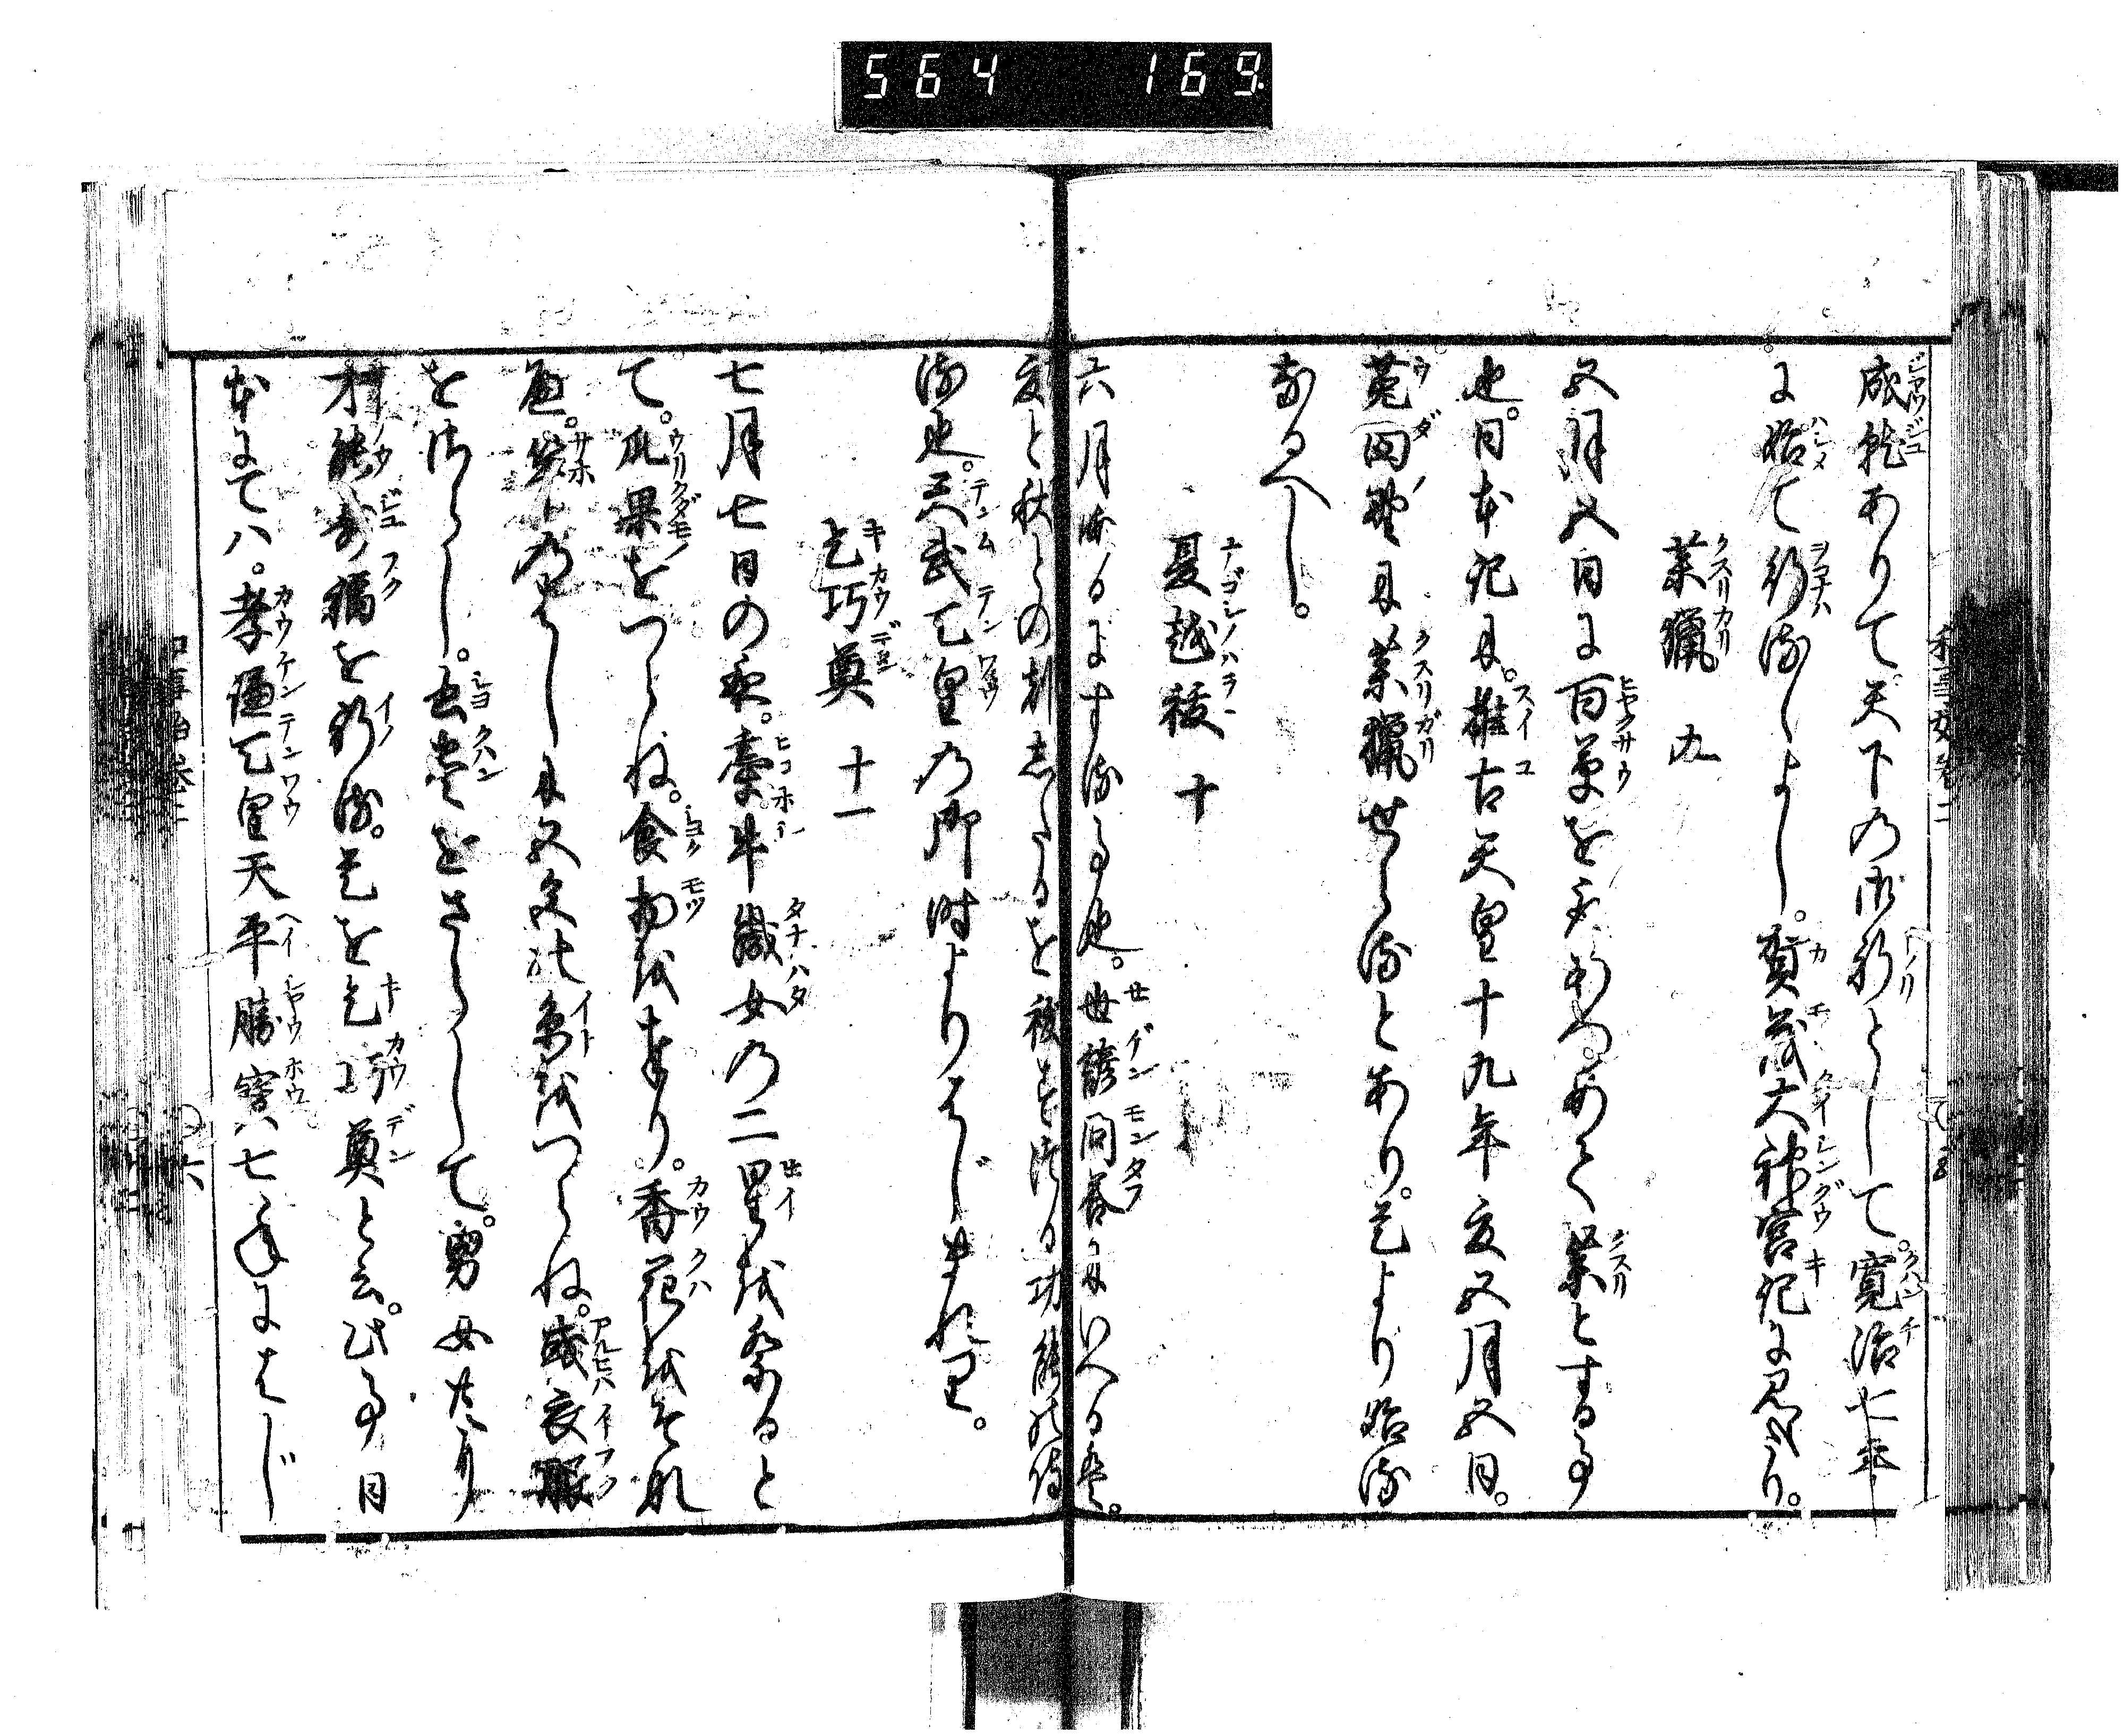 564 169
成就ありて天下の御祈として。寛治七年
に始て行るゝよし。賀茂大神宮記に見へたり。
薬猟 九
五月五日に百草をとりあつめて薬とする事
也。日本記に。推古天皇十九年夏五月五日。
菟田野に薬猟せらるとあり。是より始る
なるへし。
夏越祓 十
六月晦日にする事也。世諺問答にいへるは。
夏と秋との
る也。天武天皇の御時よりはじまれり。
乞巧奠 十一
七月七日の夜。牽牛織女の二星を祭ると
て。瓜果をつらね。食物をそなへ。香花をそなへ
竿の はしに五色の糸をつらね。或衣服
をほし。書巻をさらして。男女たかり
才能寿福を祈る。是を乞巧奠と云。此事日
本にては。孝謙天皇天平勝宝七年にはじ
六